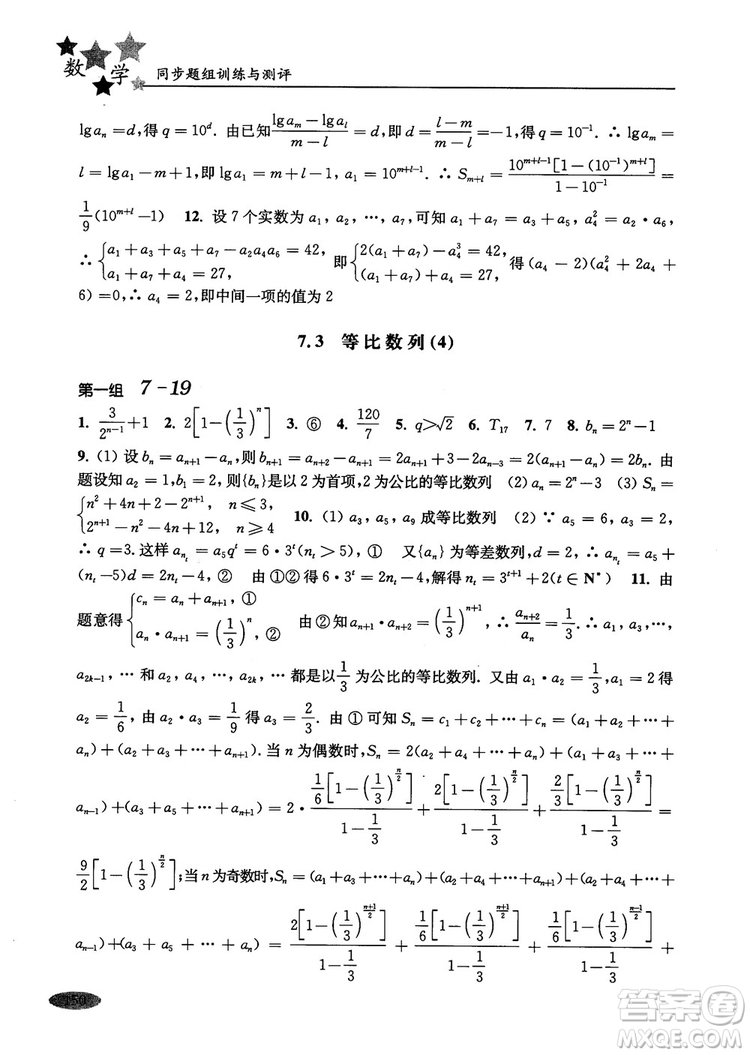 数学 同步题组训练与测评
lga_n=d,得 q=10^d. 由已知 (lga_m-lga_l)/(m-l)=d,即 d=(l-m)/(m-l)=-1,即 q=10^{-1}. ∴ lga_m=
l=lga_1-m+1,即 lga_1=m+l-1,a_1=10^{m+l-1}. ∴ S_{m+l}=10^{m+l-1}[1-(10^{-1})^{m+l}]/(1-10^{-1})=
1/9(10^{m+l}-1) 12. 设 7 个实数为 a_1, a_2, …, a_7, 可知 a_1+a_7=a_3+a_5, a_4^2=a_2·a_6,
∴{a_1+a_3+a_5+a_7-a_2a_4a_6=42, a_1+a_4+a_7=27, 即{2(a_1+a_7)-a_4^3=42, a_1+a_4+a_7=27, 得(a_4-2)(a_4^2+2a_4+
6)=0,∴ a_4=2,即中间一项的值为 2
7.3 等比数列(4)
第一组 7-19
1. 3/2^{n-1}+1 2. 2[1-(1/3)^n] 3. ⑥ 4. 120/7 5. q>√2 6. T_17 7. 7 8. b_n=2^n-1
9. (1) 设 b_n=a_{n+1}-a_n,则 b_{n+1}=a_{n+2}-a_{n+1}=2a_{n+1}+3-2a_n-3=2(a_{n+1}-a_n)=2b_n. 由
题设知 a_2=1,b_1=2,则{b_n}是以 2 为首项,2 为公比的等比数列 (2) a_n=2^n-3 (3) S_n=
{n^2+4n+2-2^{n+1}, n≤3 2^{n+1}-n^2-4n+12, n≥4 10. (1) a_3, a_5, a_9 成等比数列 (2) ∵ a_5=6, a_3=2,
∴ q=3. 这样 a_{n_t}=a_5q^t=6·3^t(t>5),① 又{a_n}为等差数列,d=2,∴ a_{n_t}=a_5+
(n_t-5)d=2n_t-4,② 由①②得 6·3^t=2n_t-4,解得 n_t=3^{t+1}+2(t∈N*) 11. 由
题意得{c_n=a_n+a_{n+1} ① a_n·a_{n+1}=(1/3)^n ② 由②知 a_{n+1}·a_{n+2}=(1/3)^{n+1}, ∴ a_{n+2}/a_n=1/3. ∴ a_1, a_3, …,
a_{2k-1}, … 和 a_2, a_4, …, a_{2k}, … 都是以 1/3 为公比的等比数列. 又由 a_1·a_2=1/3, a_1=2 得
a_2=1/6,由 a_2·a_3=1/9 得 a_3=2/3. 由①可知 S_n=c_1+c_2+…+c_n=(a_1+a_2+…+
a_n)+(a_2+a_3+…+a_{n+1}). 当 n 为偶数时,S_n=2(a_2+a_4+…+a_n)+(a_1+a_3+…+
a_{n-1})+(a_3+a_5+…+a_{n+1})=2·1/6[1-(1/3)^{n/2}]/(1-1/3)+2[1-(1/3)^{n/2}]/(1-1/3)+2/3[1-(1/3)^{n/2}]/(1-1/3)=
9/2[1-(1/3)^{n/2}];当 n 为奇数时,S_n=(a_1+a_3+…+a_n)+(a_2+a_4+…+a_{n+1})+(a_2+a_4+…+
a_{n-1})+(a_3+a_5+…+a_n)=2[1-(1/3)^{(n+1)/2}]/(1-1/3)+1/6[1-(1/3)^{(n+1)/2}]/(1-1/3)+1/6[1-(1/3)^{(n-1)/2}]/(1-1/3)+
150
作业精灵